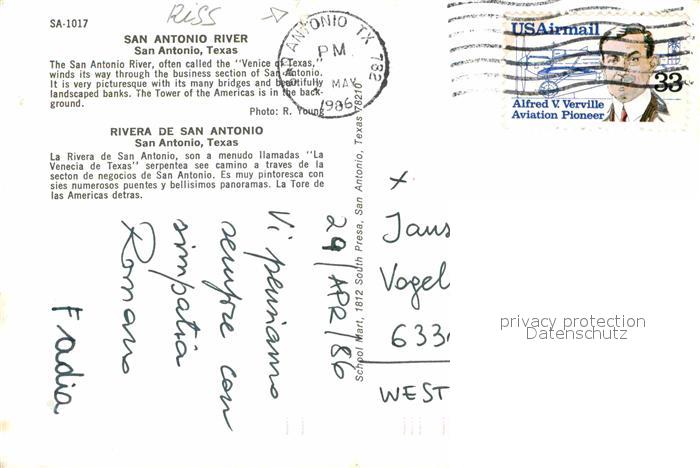 SA-1017
RISS
SAN ANTONIO RIVER
San Antonio, Texas
The San Antonio River, often called the "Venice of Texas,"
winds its way through the business section of San Antonio.
It is very picturesque with its many bridges and beautifully
landscaped banks. The Tower of the Americas is in the back-
ground.
Photo: R. Young
RIVERA DE SAN ANTONIO
San Antonio, Texas
La Rivera de San Antonio, son a menudo llamadas "La
Venecia de Texas" serpentea see camino a traves de la
secton de negocios de San Antonio. Es muy pintoresca con
sies numerosos puentes y bellisimos panoramas. La Tore de
las Americas detras.
SAN ANTONIO TX 782
PM
MAY
1986
USAirmail
33
Alfred V. Verville
Aviation Pioneer
School Mart, 1812 South Presa, San Antonio, Texas 78210
29/APR/86
Vi pensiamo
sempre con
simpatia
Romano
Fradia
Jans
Vogel
633
WEST
privacy protection
Datenschutz